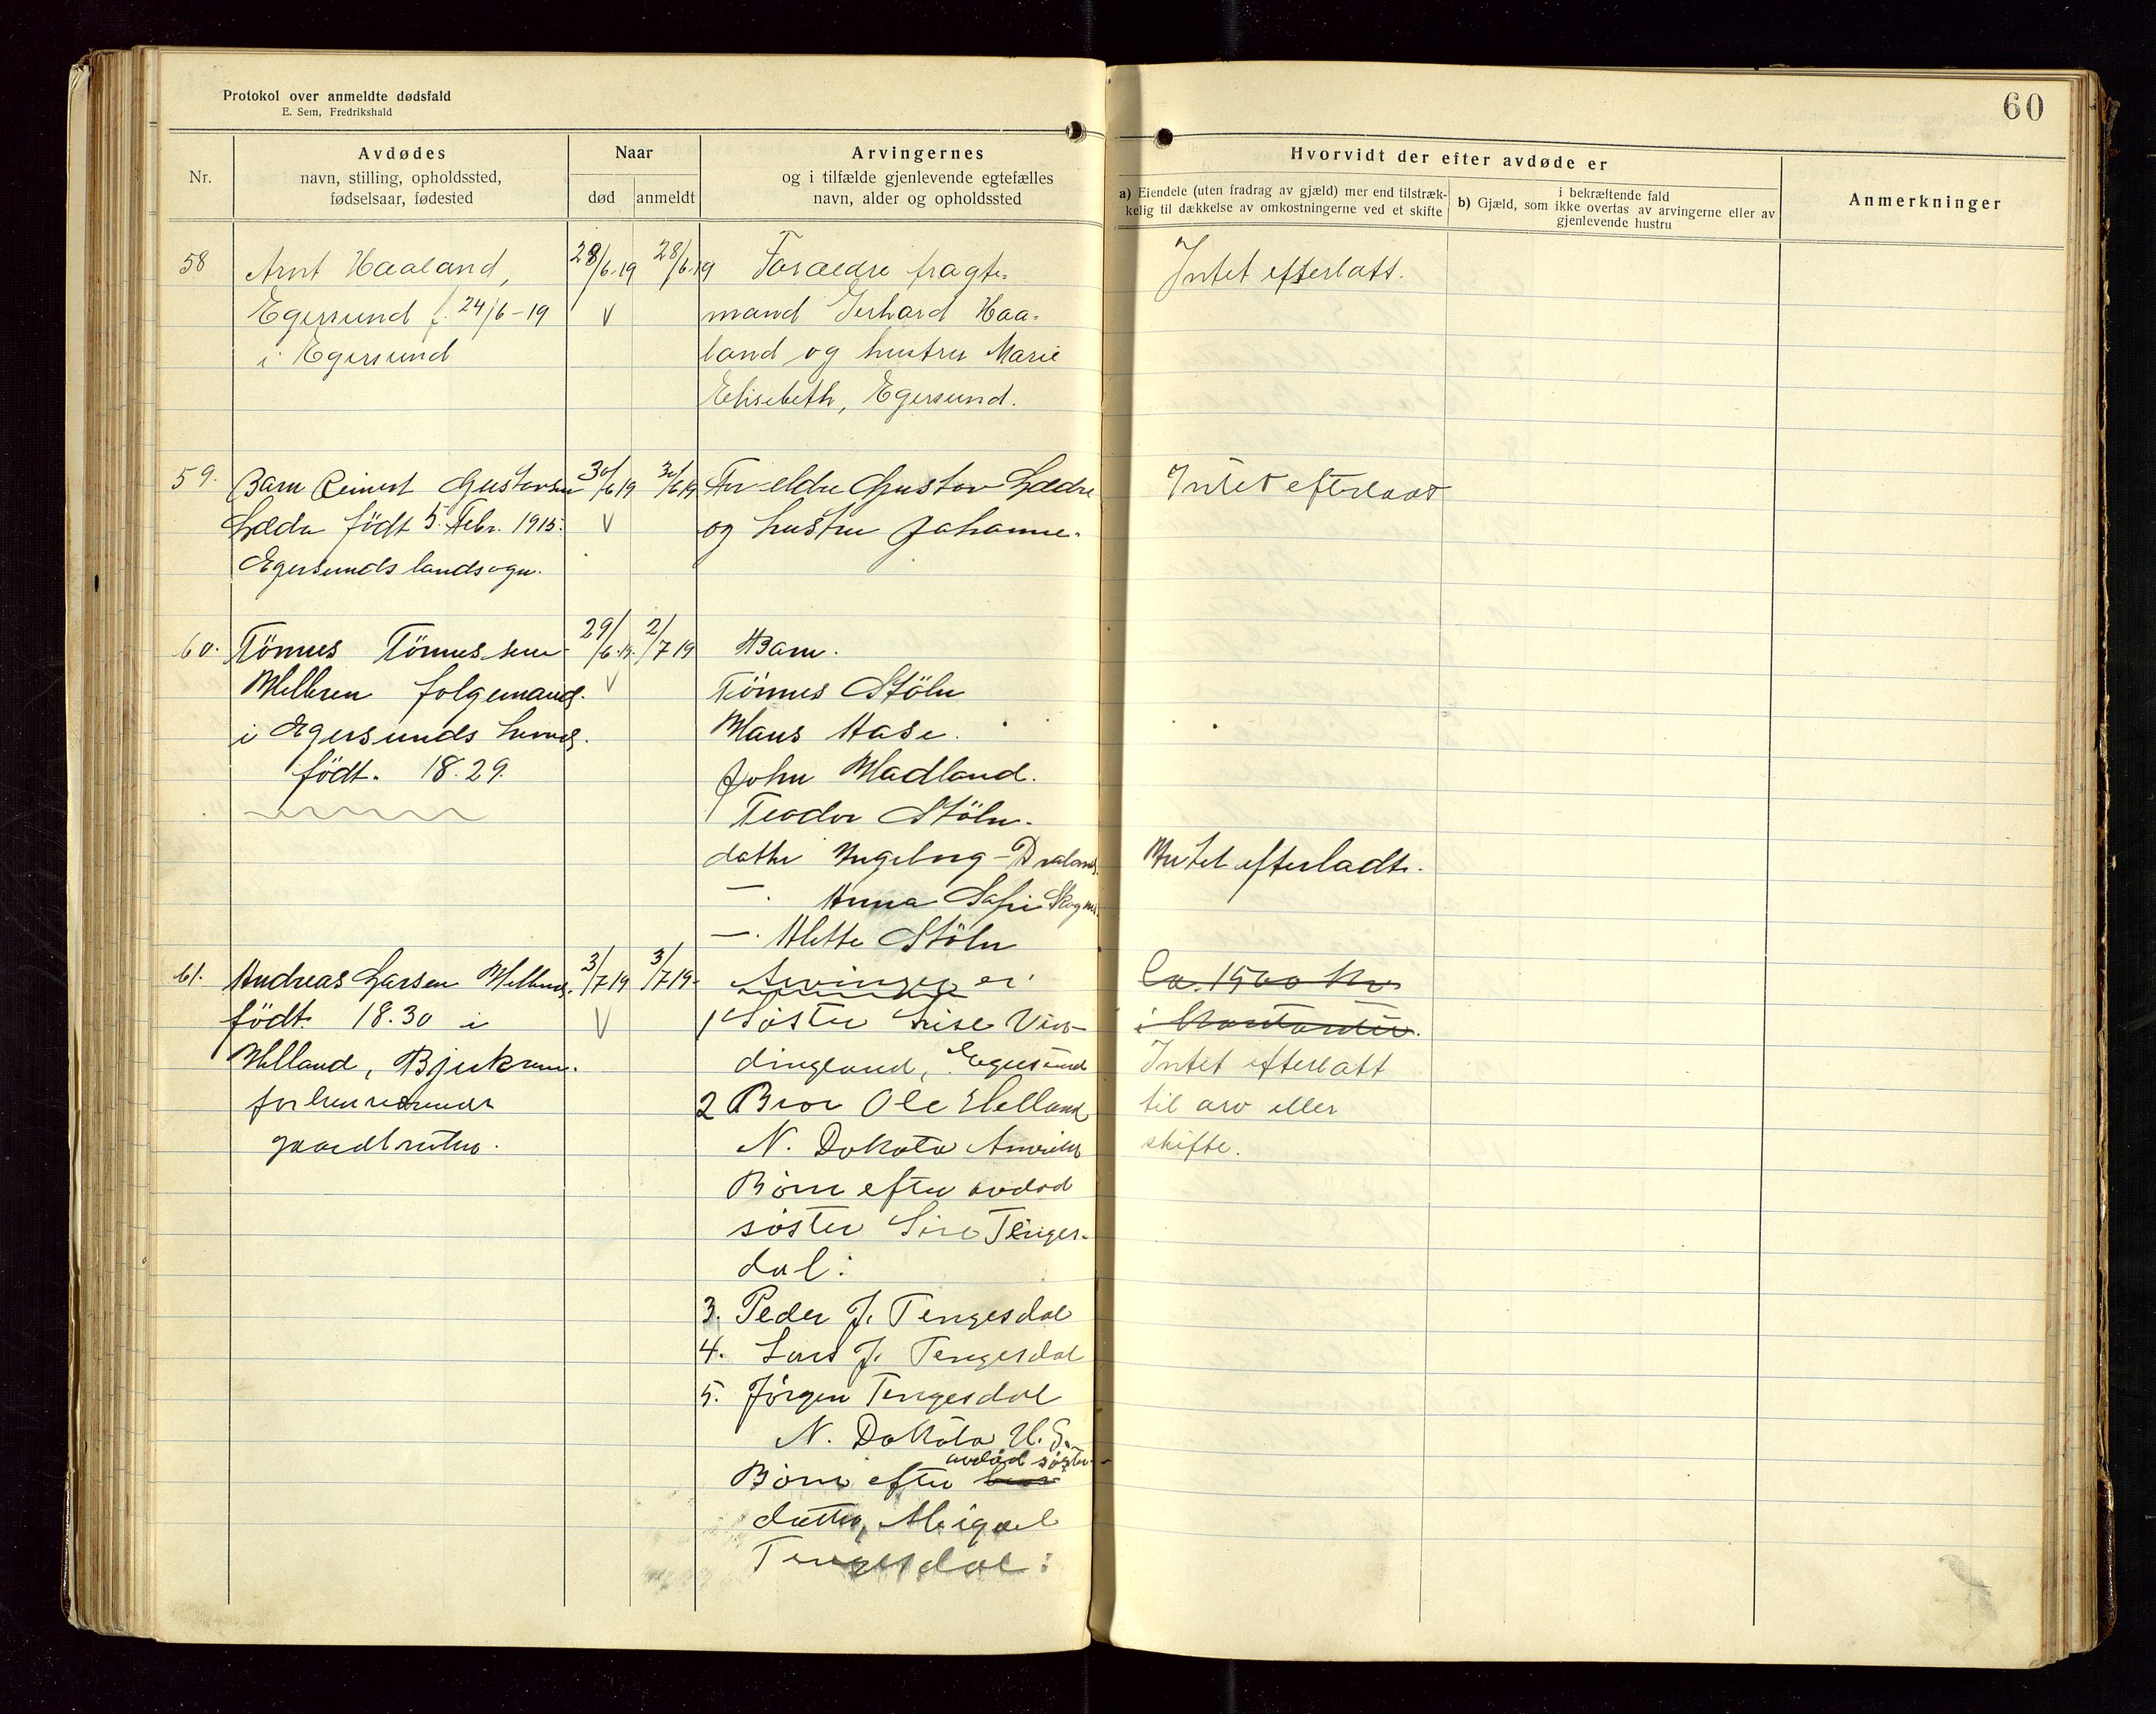 Protokol over anmeldte dødsfald
E. Sem, Fredrikshald
60
Nr.
Avdødes
navn, stilling, opholdssted,
fødselsaar, fødested
Naar
død
anmeldt
Arvingernes
og i tilfælde gjenlevende egtefælles
navn, alder og opholdssted
Hvorvidt der efter avdøde er
a) Eiendele (uten fradrag av gjæld) mer end tilstræk-
kelig til dækkelse av omkostningerne ved et skifte
i bekræftende fald
b) Gjæld, som ikke overtas av arvingerne eller av
gjenlevende hustru
Anmerkninger
58
Arnt Haaland,
Egersund f. 24/6-19
i Egersund
28/6-19
V
28/6-19
Foraeldre fragte-
mand Gerhard Haa-
land og hustru Marie
Elisebeth, Egersund.
Intet efterlatt.
59.
Barn Reinert Gustavsen
født 5. Febr. 1915.
Egersunds landsogn.
30/6 19
V
30/6 19
Foreldre Gustav
og hustru Johanne.
Intet efterlat
60.
Tönnes Tönnessen
folgemand
i Egersunds
født. 18.29.
29/6.19.
V
2/7 19
Barn.
Tönnes Stöln
Maus Aase.
John Madland.
Teodor Stöln.
datter Ingeborg
— Anna Sofie
— Alette Stöln
Intet efterladt.
61.
Andreas Larsen
født 18.30 i
Helland, Bjerkrem.
forhenværende
gaardbruker.
3/7 19
V
3/7 19.
Arvinger er:
1 Søster Lise Vin-
dingland, Egersund
2 Bror Ole Helland
N. Dakota Amerika
Börn efter avdød
søster Sire Tenges-
dal:
3. Peder J. Tengesdal
4. Lars J. Tengesdal
5. Jörgen Tengesdal
N. Dakota U. S.
avdöd söster-
Börn efter bror
datter, Abigael
Tengesdal:
Ca. 1500 Kr
i Kontanter.
Intet efterlatt
til arv eller
skifte.